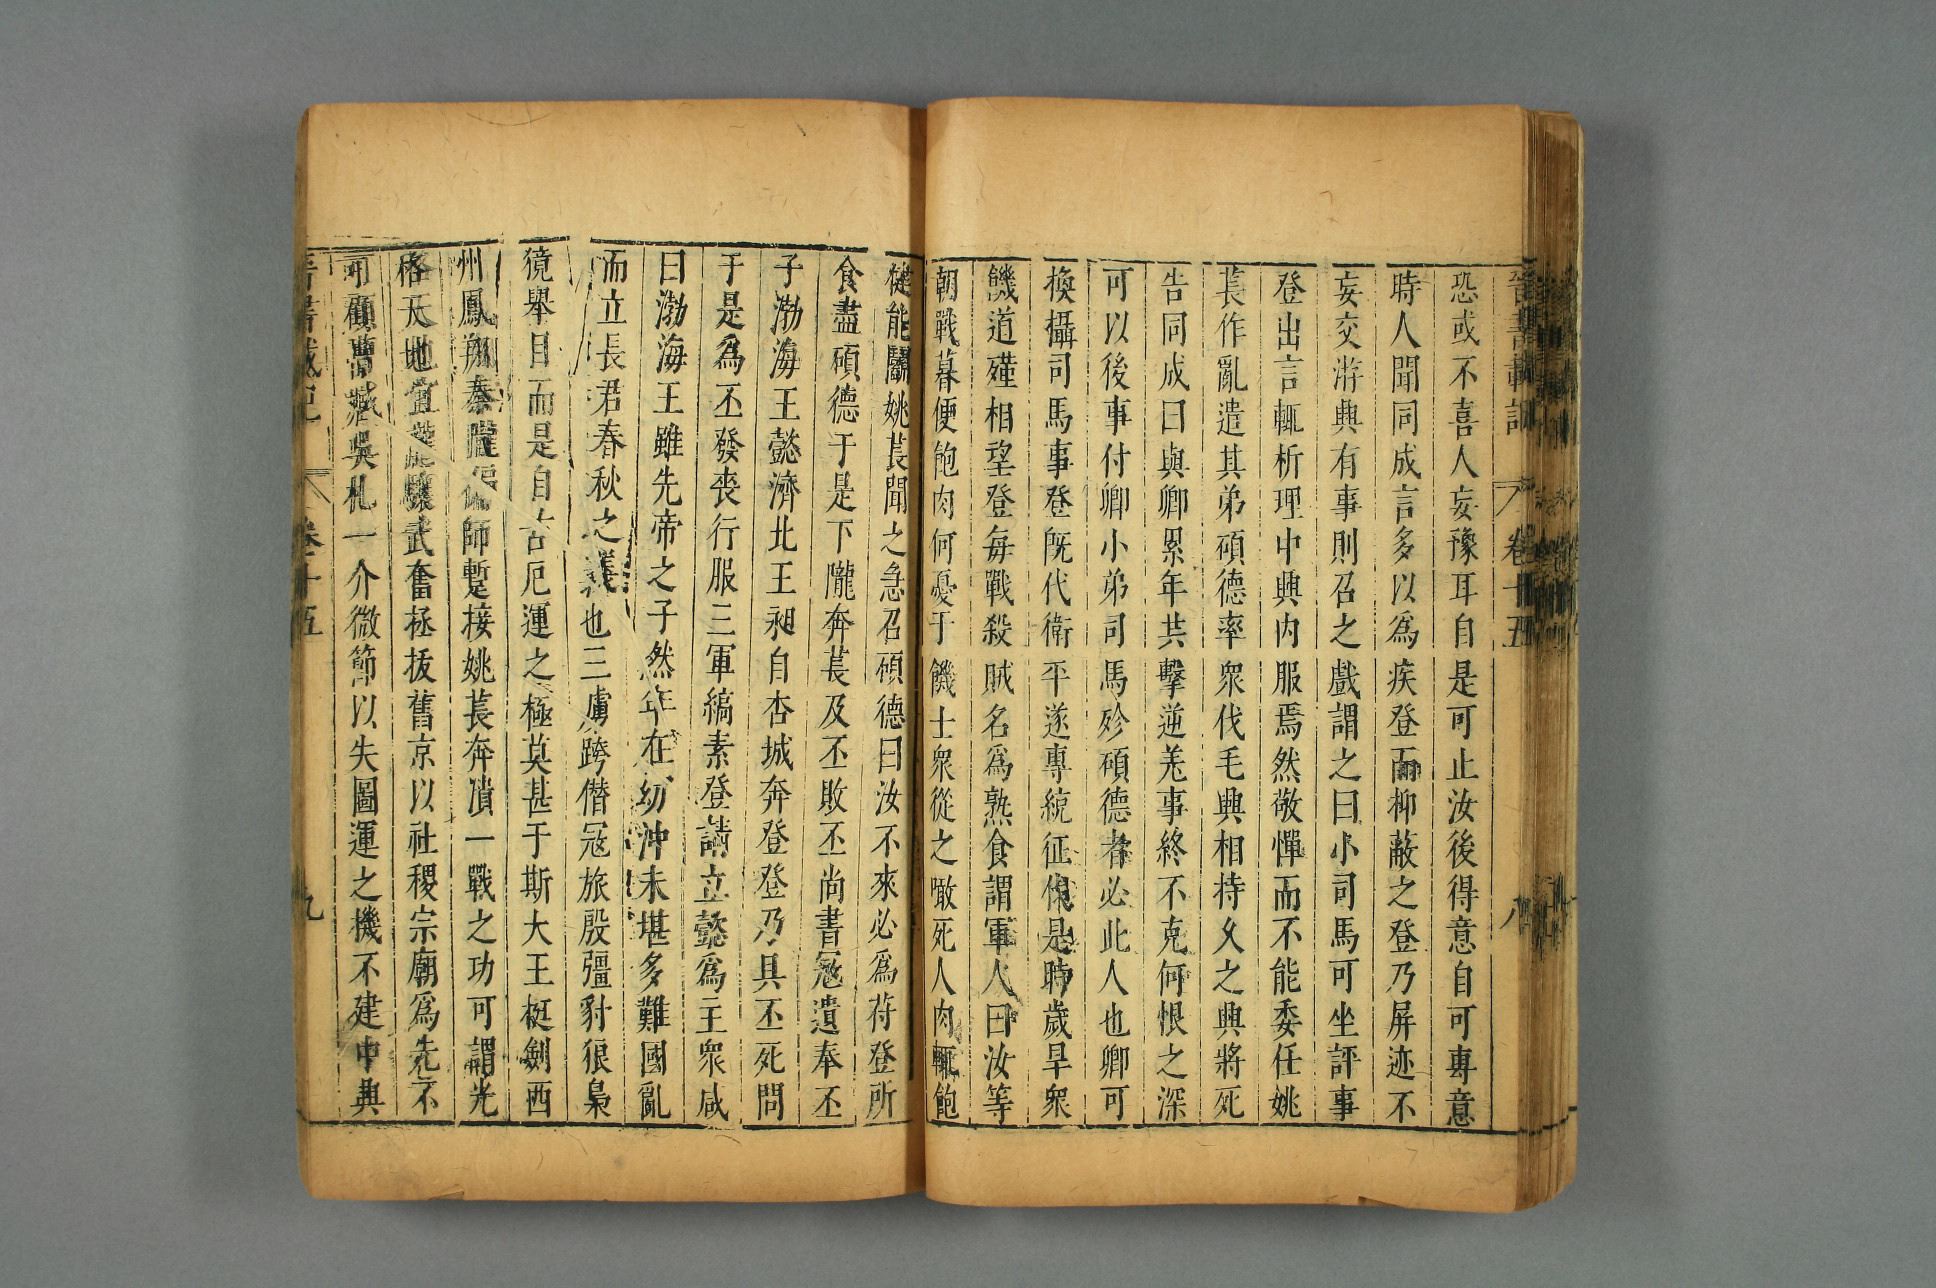 晉書載記 卷十五 八
恐或不喜人妄豫耳自是可止汝後得意自可專意
時人聞同成言多以爲疾登而抑蔽之登乃屏迹不
妄交游與有事則召之戲謂之曰小司馬可坐評事
登出言輒析理中興内服焉然敬憚而不能委任姚
萇作亂遣其弟碩德率衆伐毛興相持久之興將死
告同成曰與卿累年共擊逆羌事終不克何恨之深
可以後事付卿小弟司馬殄碩德者必此人也卿可
換攝司馬事登旣代衛平遂專統征伐是時歲旱衆
饑道殣相望登每戰殺賊名爲熟食謂軍人曰汝等
朝戰暮便飽肉何憂于饑士衆從之噉死人肉輒飽
健能鬭姚萇聞之急召碩德曰汝不來必爲苻登所
食盡碩德于是下隴奔萇及丕敗丕尚書寇遺奉丕
子渤海王懿濟北王昶自杏城奔登登乃具丕死問
于是爲丕發喪行服三軍縞素登請立懿爲主衆咸
曰渤海王雖先帝之子然年在幼沖未堪多難國亂
而立長君春秋之義也三虜跨僭寇旅殷彊豺狼梟
獍舉目而是自古厄運之極莫甚于斯大王挺劍西
州鳳翔秦隴偏師暫接姚萇奔潰一戰之功可謂光
格天地宜龍驤武奮拯拔舊京以社稷宗廟爲先不
可顧曹臧吳札一介微節以失圖運之機不建中興
晉書載記 卷十五 九